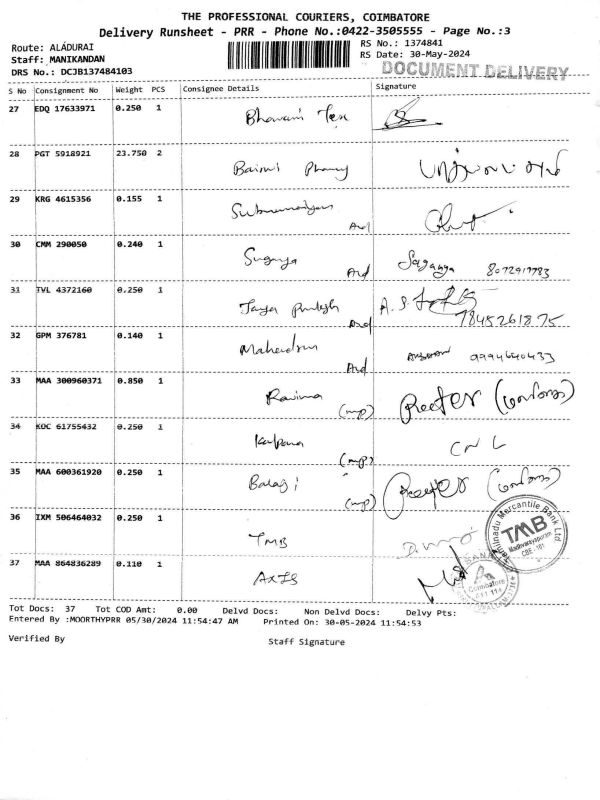 THE PROFESSIONAL COURIERS, COIMBATORE
Delivery Runsheet - PRR - Phone No.:0422-3505555 - Page No.:3
Route: ALADURAI
RS No.: 1374841
Staff: MANIKANDAN
RS Date: 30-May-2024
DRS No.: DCJB137484103
DOCUMENT DELIVERY
S No Consignment No Weight PCS Consignee Details Signature
27 EDQ 17633971 0.250 1 Bhavani Tex
28 PGT 5918921 23.750 2
29 KRG 4615356 0.155 1 Subramaniyam
30 CMM 290050 0.240 1 Suganya Ard 8072917783
31 TVL 4372160 0.250 1 Ard 7845261875
32 GPM 376781 0.140 1 Ard 9994640433
33 MAA 300960371 0.850 1 Ravina (mp)
34 KOC 61755432 0.250 1 Kalpana (mp) CNL
35 MAA 600361920 0.250 1 Balagi (mp)
36 IXM 506464032 0.250 1 TMB
Tamilnadu Mercantile Bank Ltd
TMB
CBE - 101
37 MAA 864836289 0.110 1 AXIS
Coimbatore
Tot Docs: 37 Tot COD Amt: 0.00 Delvd Docs: Non Delvd Docs: Delvy Pts:
Entered By :MOORTHYPRR 05/30/2024 11:54:47 AM Printed On: 30-05-2024 11:54:53
Verified By Staff Signature